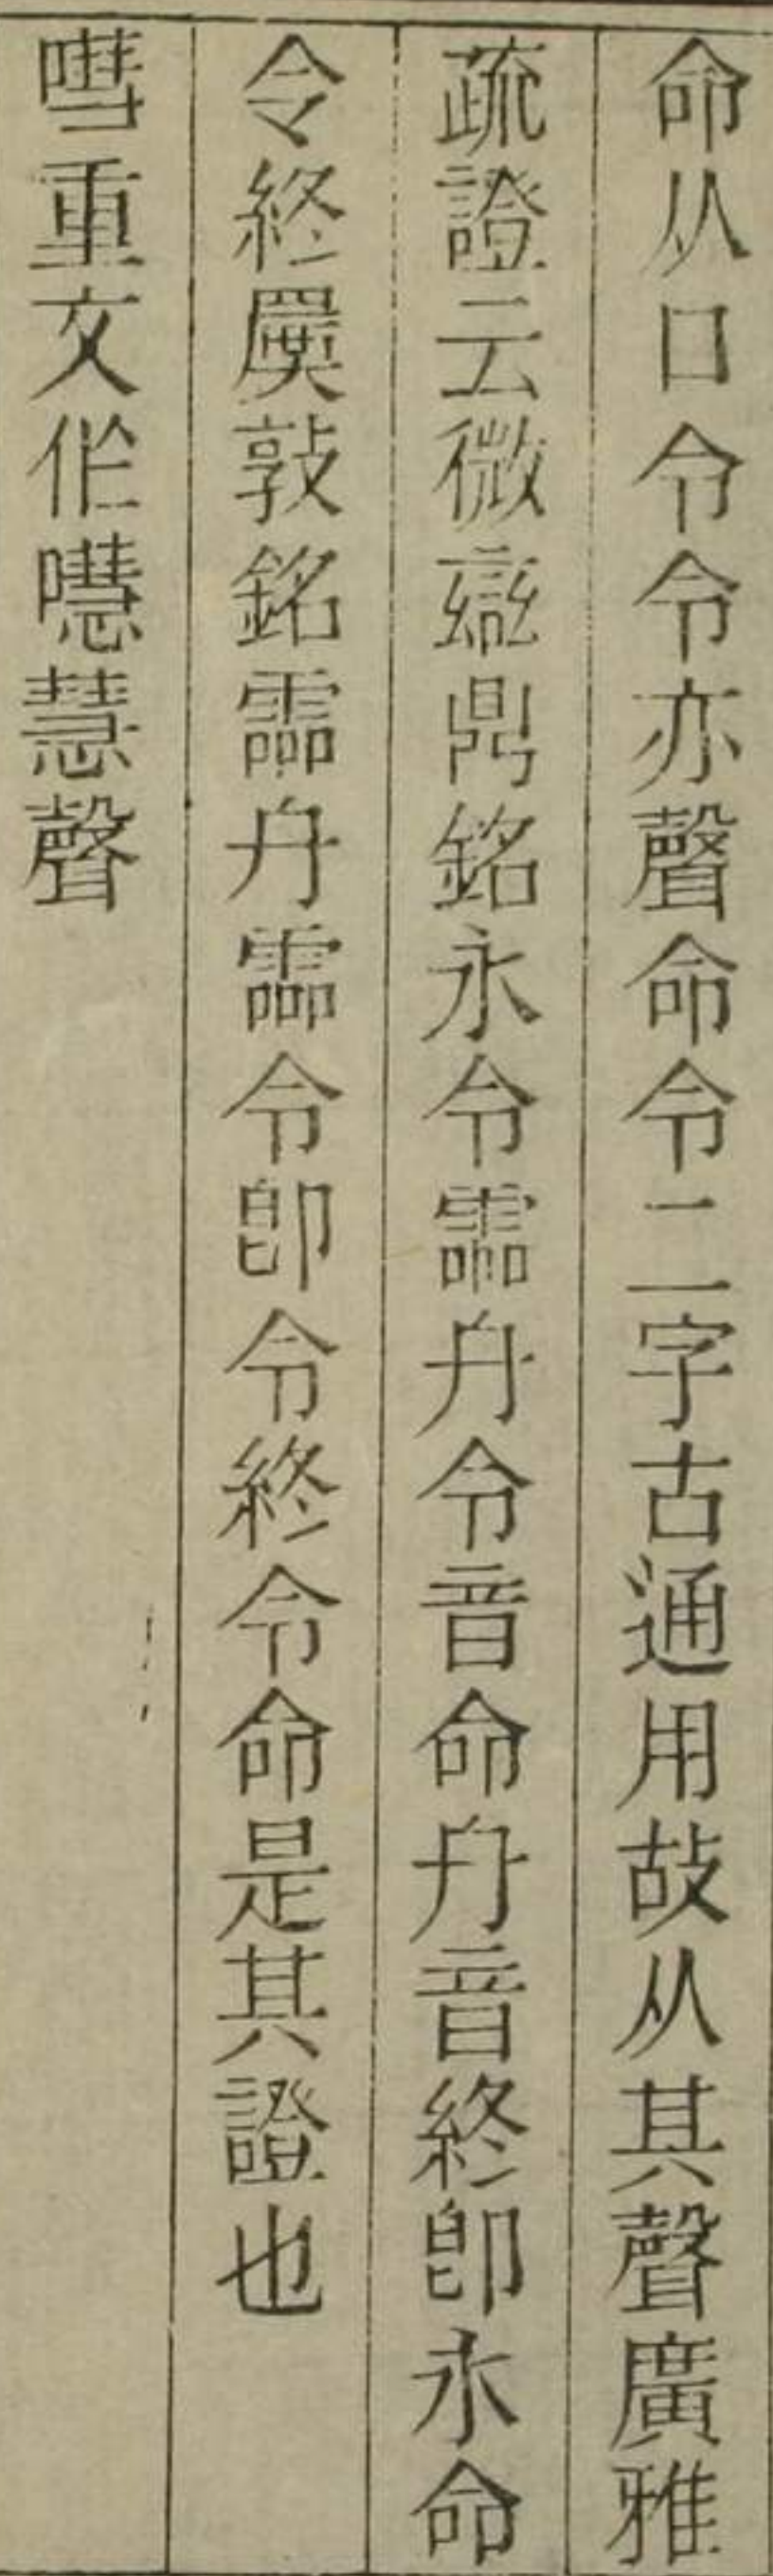 命从口令令亦聲命令二字古通用故从其聲廣雅
疏證云微䜌鼎銘永令霝舟令音命舟音終卽永命
令終敦銘霝舟霝令卽令終令命是其證也
嘒重文作嚖慧聲